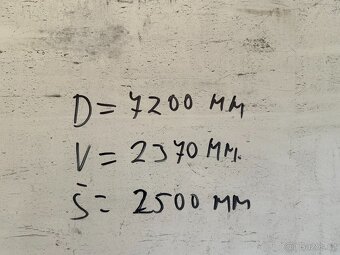 D = 7200 MM
V = 2370 MM.
Š = 2500 MM